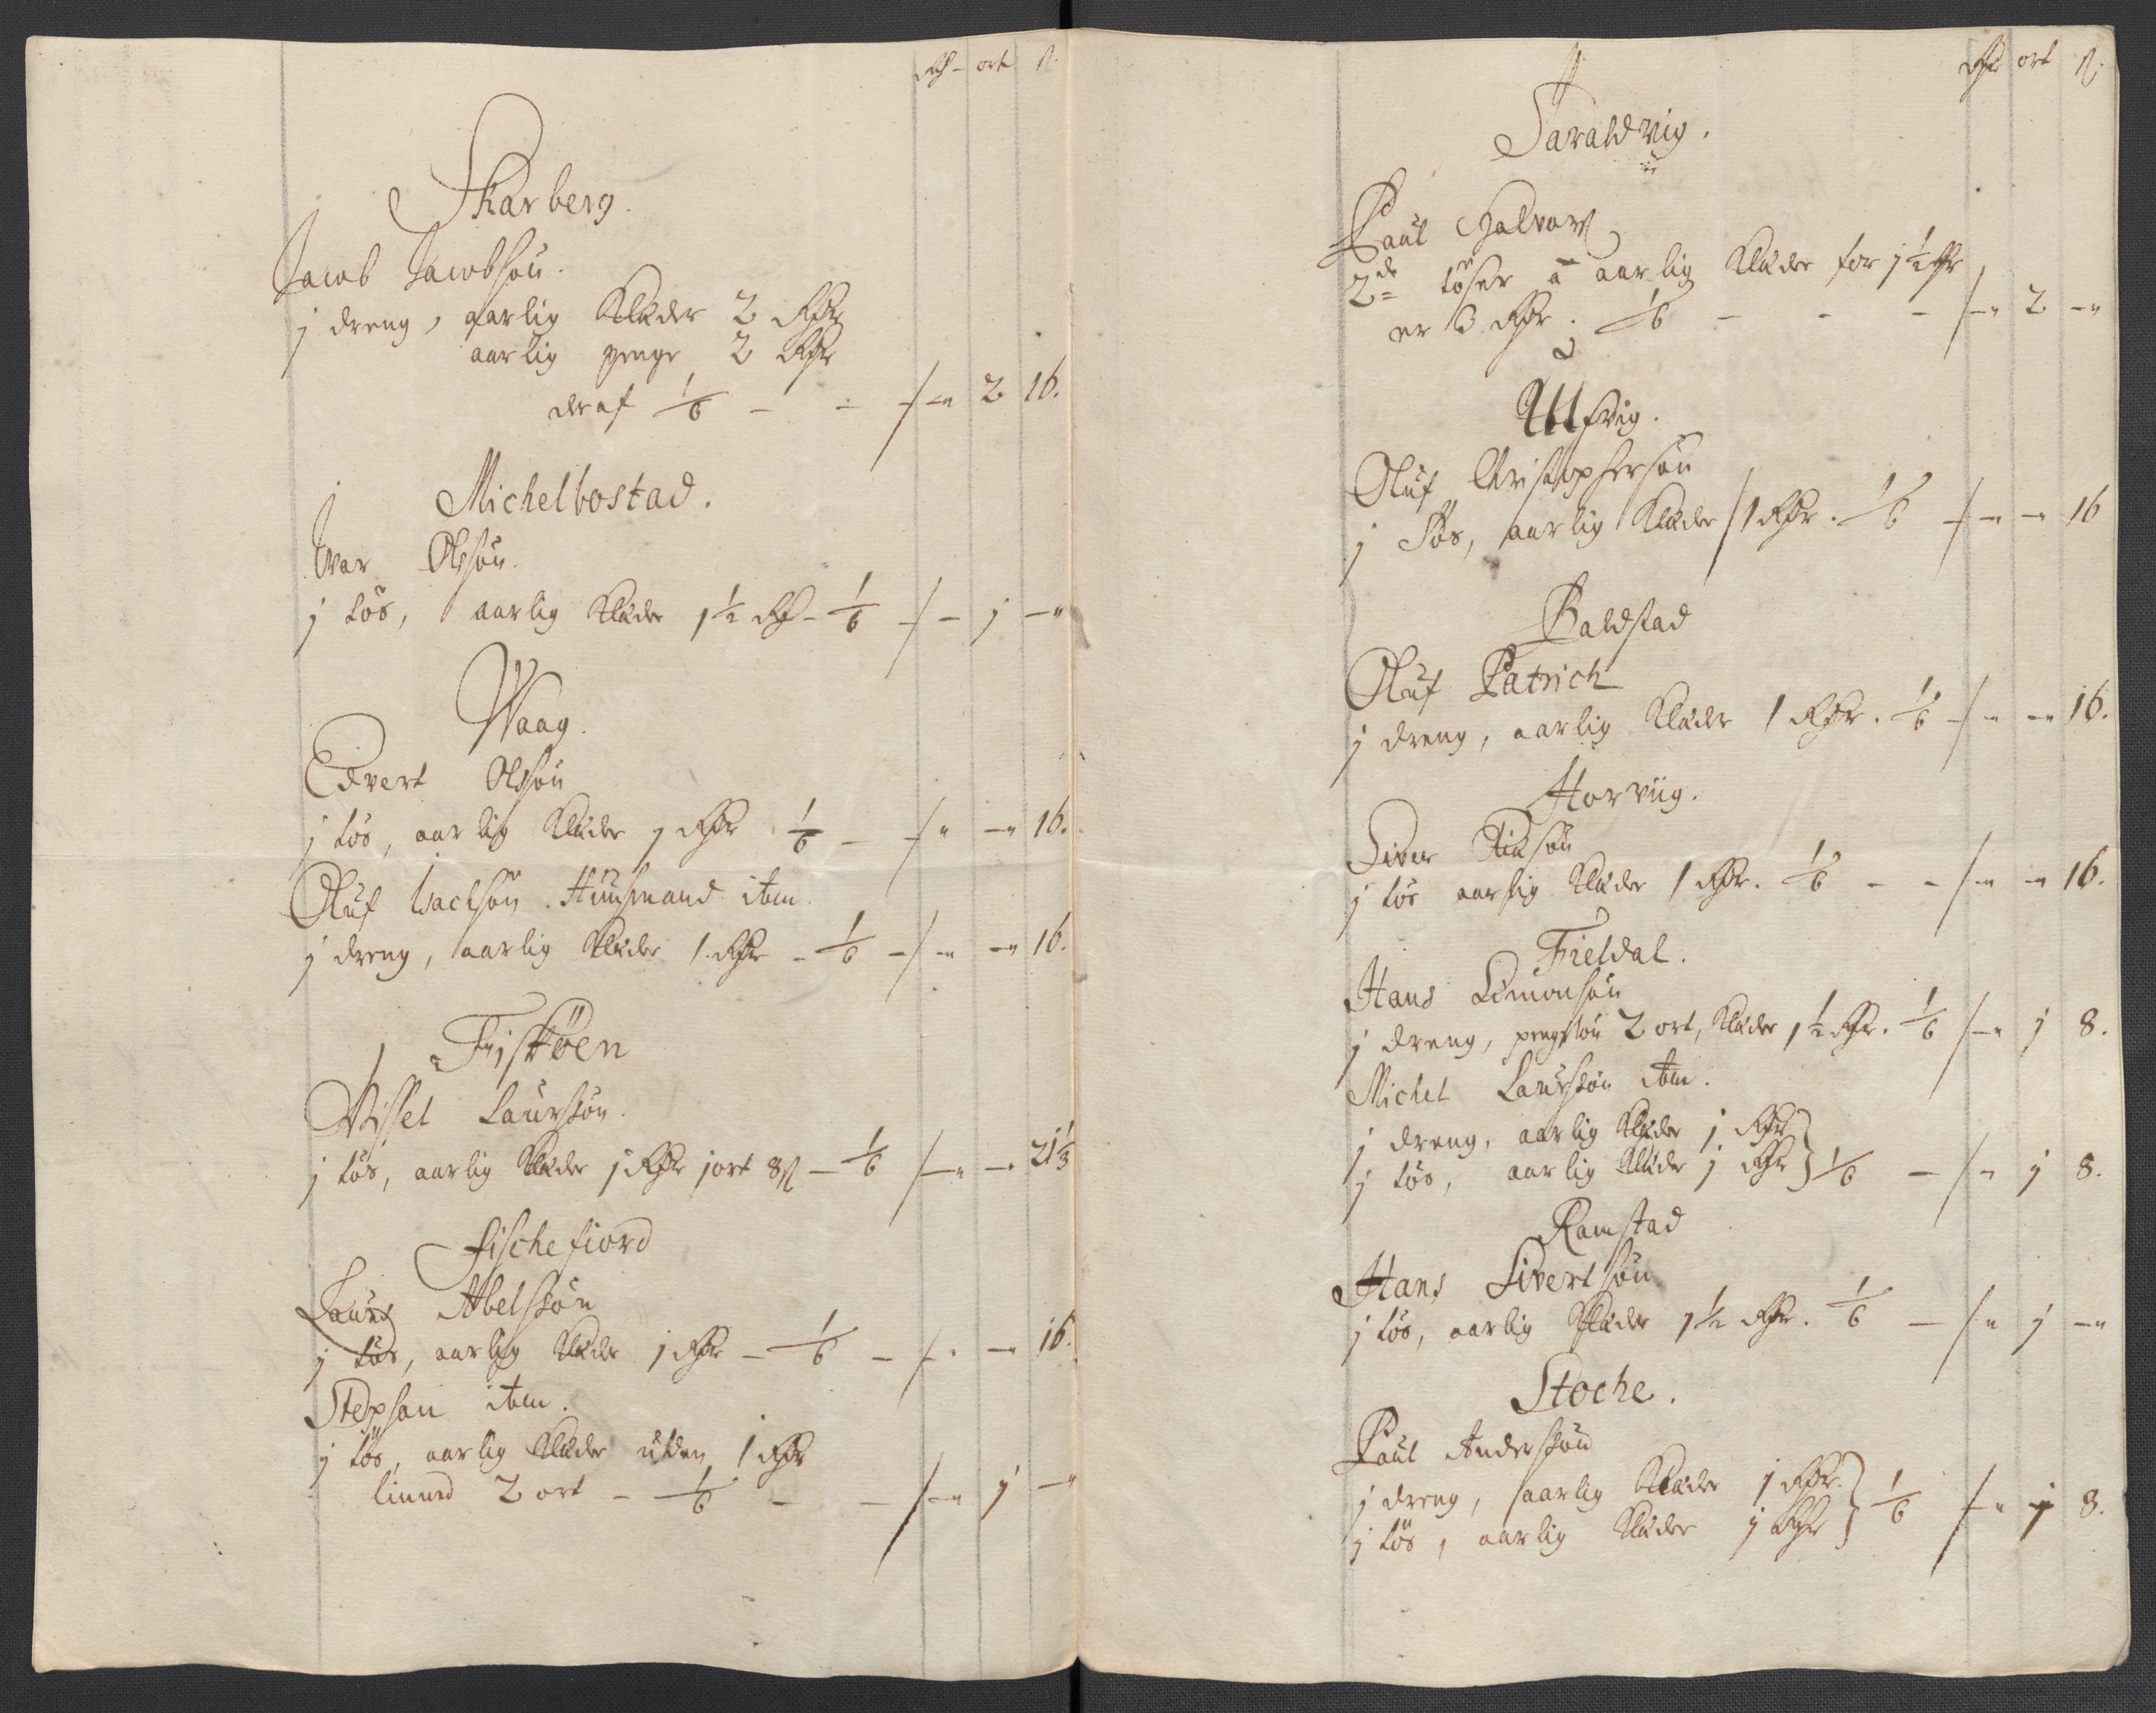 Rdr ort ß
Skarberg.
Jacob Jacobsøn.
j dreng, aarlig Klæder 2 Rdr
aarlig penge 2 Rdr
deraf 1/6 - - - " 2 16.
Michelbostad.
Iver Olsøn.
j tøs, aarlig Klæder 1½ Rdr - 1/6 - - j - "
Waag.
Edvert Olsøn
j tøs, aarlig Klæder j Rdr 1/6 - - " - " 16.
Oluf Isachsøn Huusmand ibm
j dreng, aarlig Klæder 1 Rdr - 1/6 - - " - " 16.
Fiskøen
Nissel Laurssøn.
j tøs, aarlig Klæder j Rdr j ort 8 ß - 1/6 - " - 21⅓
Fischefiord
Laurs Abelssøn
j tøs, aarlig Klæder j Rdr - 1/6 - - " - " 16.
Stephan ibm.
j tøs, aarlig Klæder uden 1 Rdr
linned 2 ort - 1/6 - - - " j - "
Rdr ort ß
Taraldvig.
Paul Halvors
2de tøser à aarlig Klæder for j ½ Rdr
er 3 Rdr. 1/6 - - - - " 2 - "
Ulfvig.
Oluf Christophersøn
j Tøs, aarlig Klæder 1 Rdr. 1/6 - - " - " 16
Baldstad
Oluf Patrich
j dreng, aarlig Klæder 1 Rdr. 1/6 - " - " 16.
Horviig.
Siver
j tøs aarlig Klæder 1 Rdr. 1/6 - - - " - " 16.
Fieldal.
Hans Simonsøn
j dreng, penge løn 2 ort, Klæder 1½ Rdr. 1/6 - " j 8.
Michel Laurssøn ibm.
j dreng, aarlig Klæder j Rdr
j tøs, aarlig Klæder j Rdr } 1/6 - - " j 8.
Ramstad
Hans Sivertsøn
j tøs, aarlig Klæder 1½ Rdr. 1/6 - - " j - "
Stoche.
Paul Anderssøn
j dreng, aarlig Klæder j Rdr.
j tøs, aarlig Klæder j Rdr } 1/6 - " j 8.